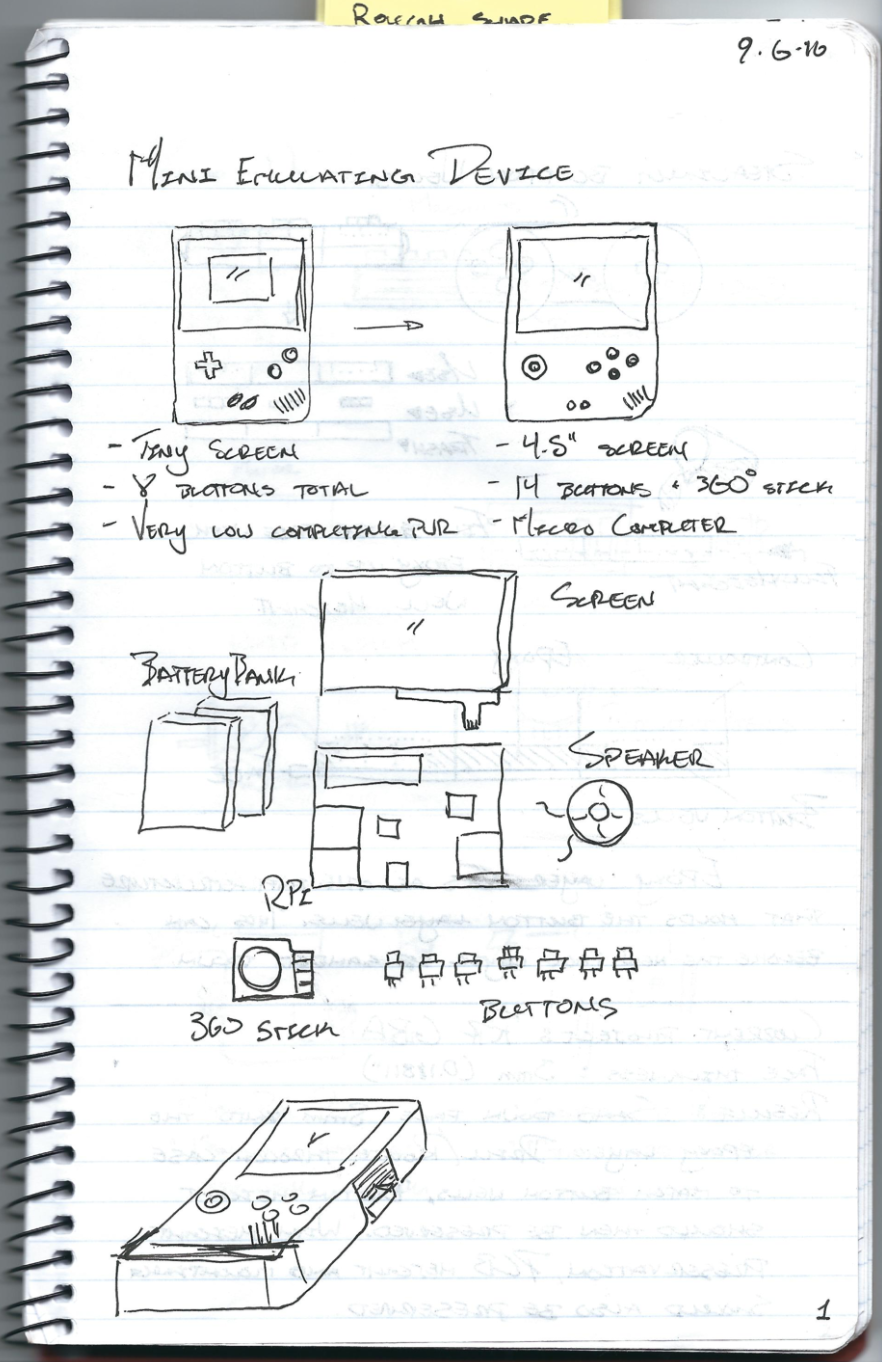 9.6.16
Mini Emulating Device
- Tiny screen
- 8 buttons total
- Very low computing pwr
- 4.5" screen
- 14 buttons + 360° stick
- Micro computer
Screen
Battery Bank
Speaker
RPi
360 stick
Buttons
1